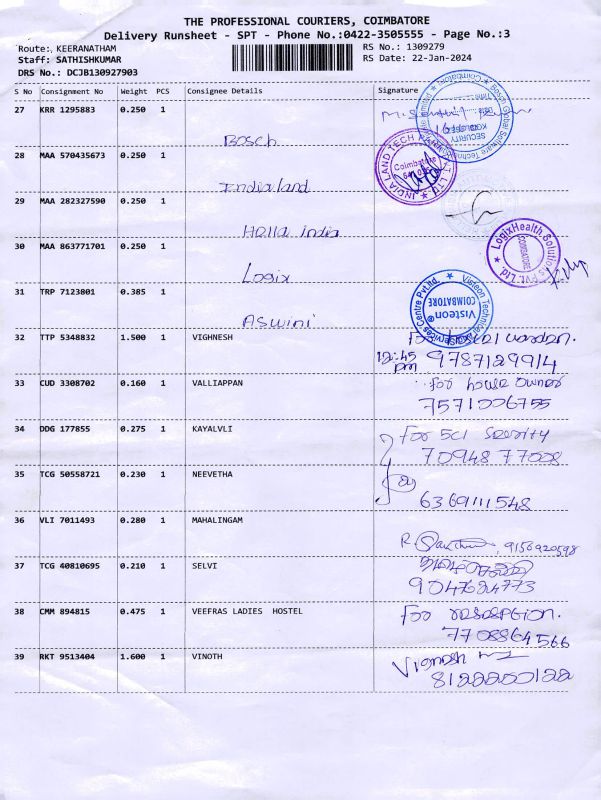 THE PROFESSIONAL COURIERS, COIMBATORE
Delivery Runsheet - SPT - Phone No.:0422-3505555 - Page No.:3
Route:, KEERANATHAM RS No.: 1309279
Staff: SATHISHKUMAR RS Date: 22-Jan-2024
DRS No.: DCJB130927903
S No Consignment No Weight PCS Consignee Details Signature
27 KRR 1295883 0.250 1
Bosch
28 MAA 570435673 0.250 1
Indialand
29 MAA 282327590 0.250 1
Hella india
30 MAA 863771701 0.250 1
Logix
31 TRP 7123801 0.385 1
Aswini
32 TTP 5348832 1.500 1 VIGHNESH For hostel warden.
12:45 pm 9787129914
33 CUD 3308702 0.160 1 VALLIAPPAN for house owner
7571006755
34 DDG 177855 0.275 1 KAYALVLI For 5C1 Security
70948 77008
35 TCG 50558721 0.230 1 NEEVETHA
6369111548
36 VLI 7011493 0.280 1 MAHALINGAM
R. 9156920598
37 TCG 40810695 0.210 1 SELVI
9047624773
38 CMM 894815 0.475 1 VEEFRAS LADIES HOSTEL For reseption.
7708864566
39 RKT 9513404 1.600 1 VINOTH Vignesh
8122250122
SECURITY
Bosch Global Software Technologies
INDIA LAND TECH PARK PVT. LTD.
Coimbatore
LogixHealth Solutions Pvt. Ltd.
COIMBATORE
Visteon Technical & Services Centre Pvt.Ltd.
Visteon®
COIMBATORE